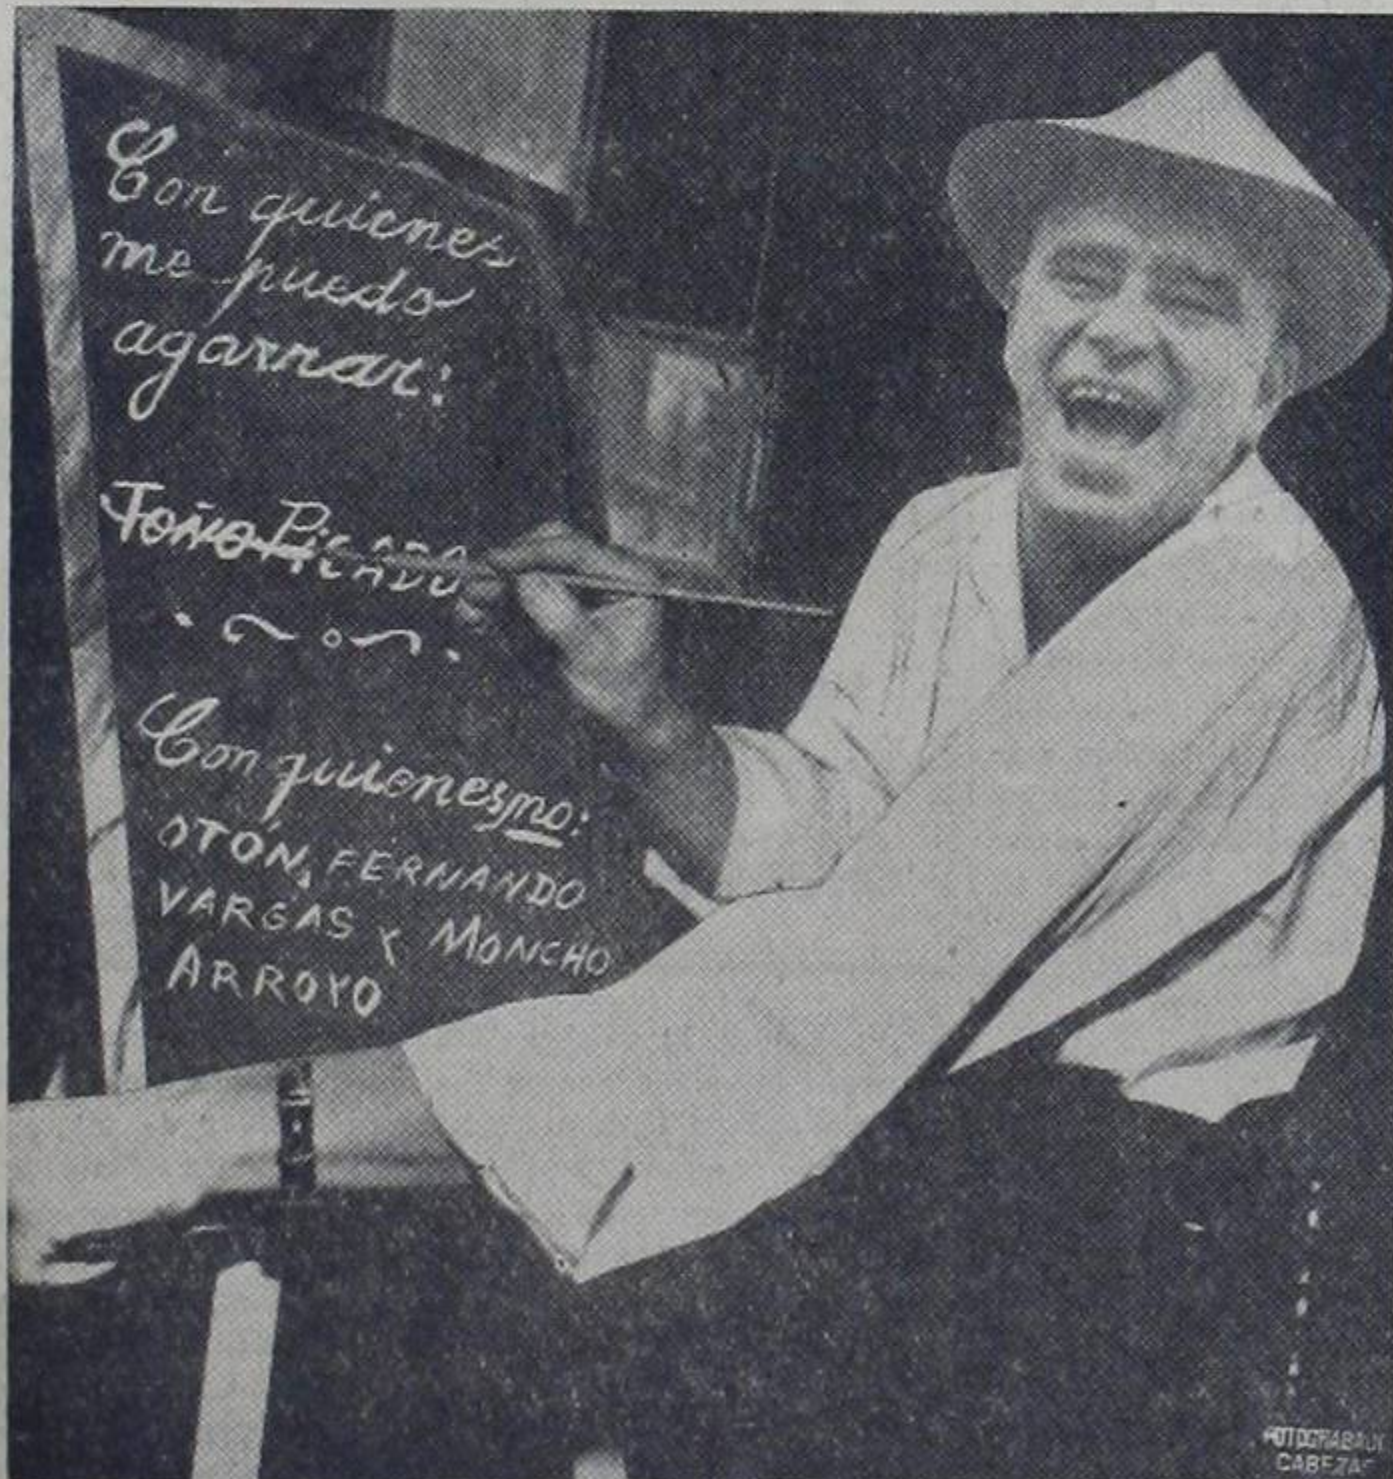 Con quienes
me puedo
agarrar:
Toño PICADO
Con quienes no:
OTÓN, FERNANDO
VARGAS Y MONCHO
ARROYO
FOTOGRABADO
CABEZAS